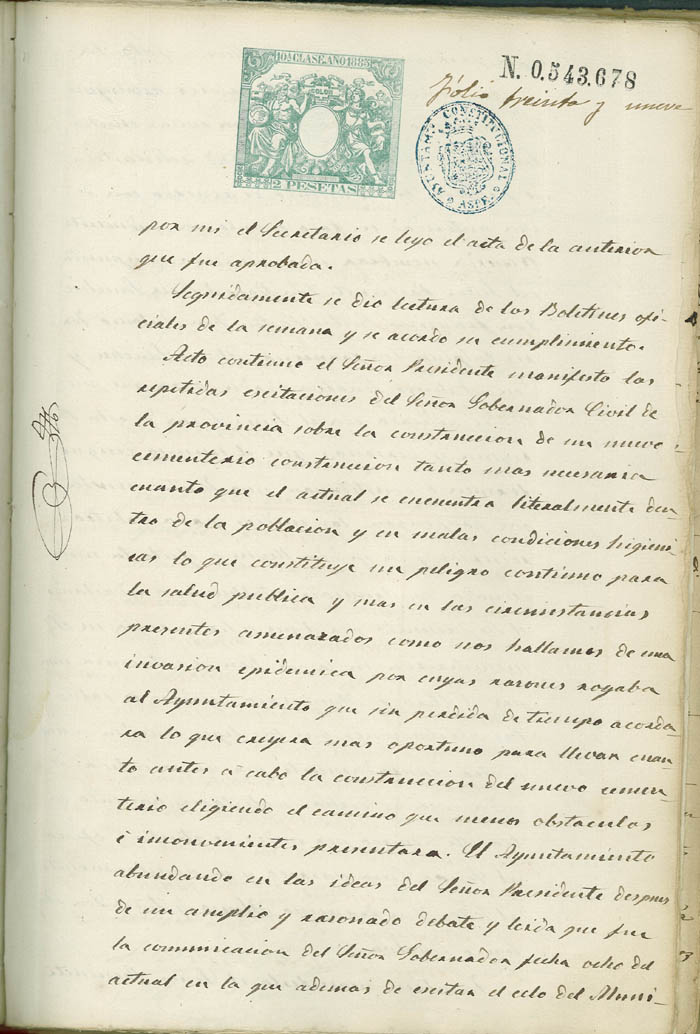 10ª CLASE. AÑO 1885
2 PESETAS
N. 0.543.678
Fólio treinta y nueve
AYUNTAMº CONSTITUCIONAL
ASPE.
por mi el Secretario se leyo el acta de la anterior
que fue aprobada.
Seguidamente se dio lectura de los Boletines ofi-
ciales de la semana y se acordo su cumplimiento.
Acto continuo el Señor Presidente manifesto las
repetidas escitaciones del Señor Gobernador Civil de
la provincia sobre la construccion de un nuevo
cementerio construccion tanto mas necesaria
cuanto que el actual se encuentra literalmente den-
tro de la poblacion y en malas condiciones higieni
cas lo que constituye un peligro continuo para
la salud publica y mas en las circunstancias
presentes amenazados como nos hallamos de una
invasion epidemica por cuyas razones rogaba
al Ayuntamiento que sin perdida de tiempo acorda-
ra lo que creyera mas oportuno para llevar cuan-
to antes á cabo la construccion del nuevo cemen-
terio eligiendo el camino que menos obstaculos
é inconvenientes presentara. El Ayuntamiento
abundando en las ideas del Señor Presidente despues
de un amplio y razonado debate y leida que fue
la comunicacion del Señor Gobernador fecha ocho del
actual en la que ademas de escitar el celo del Muni-